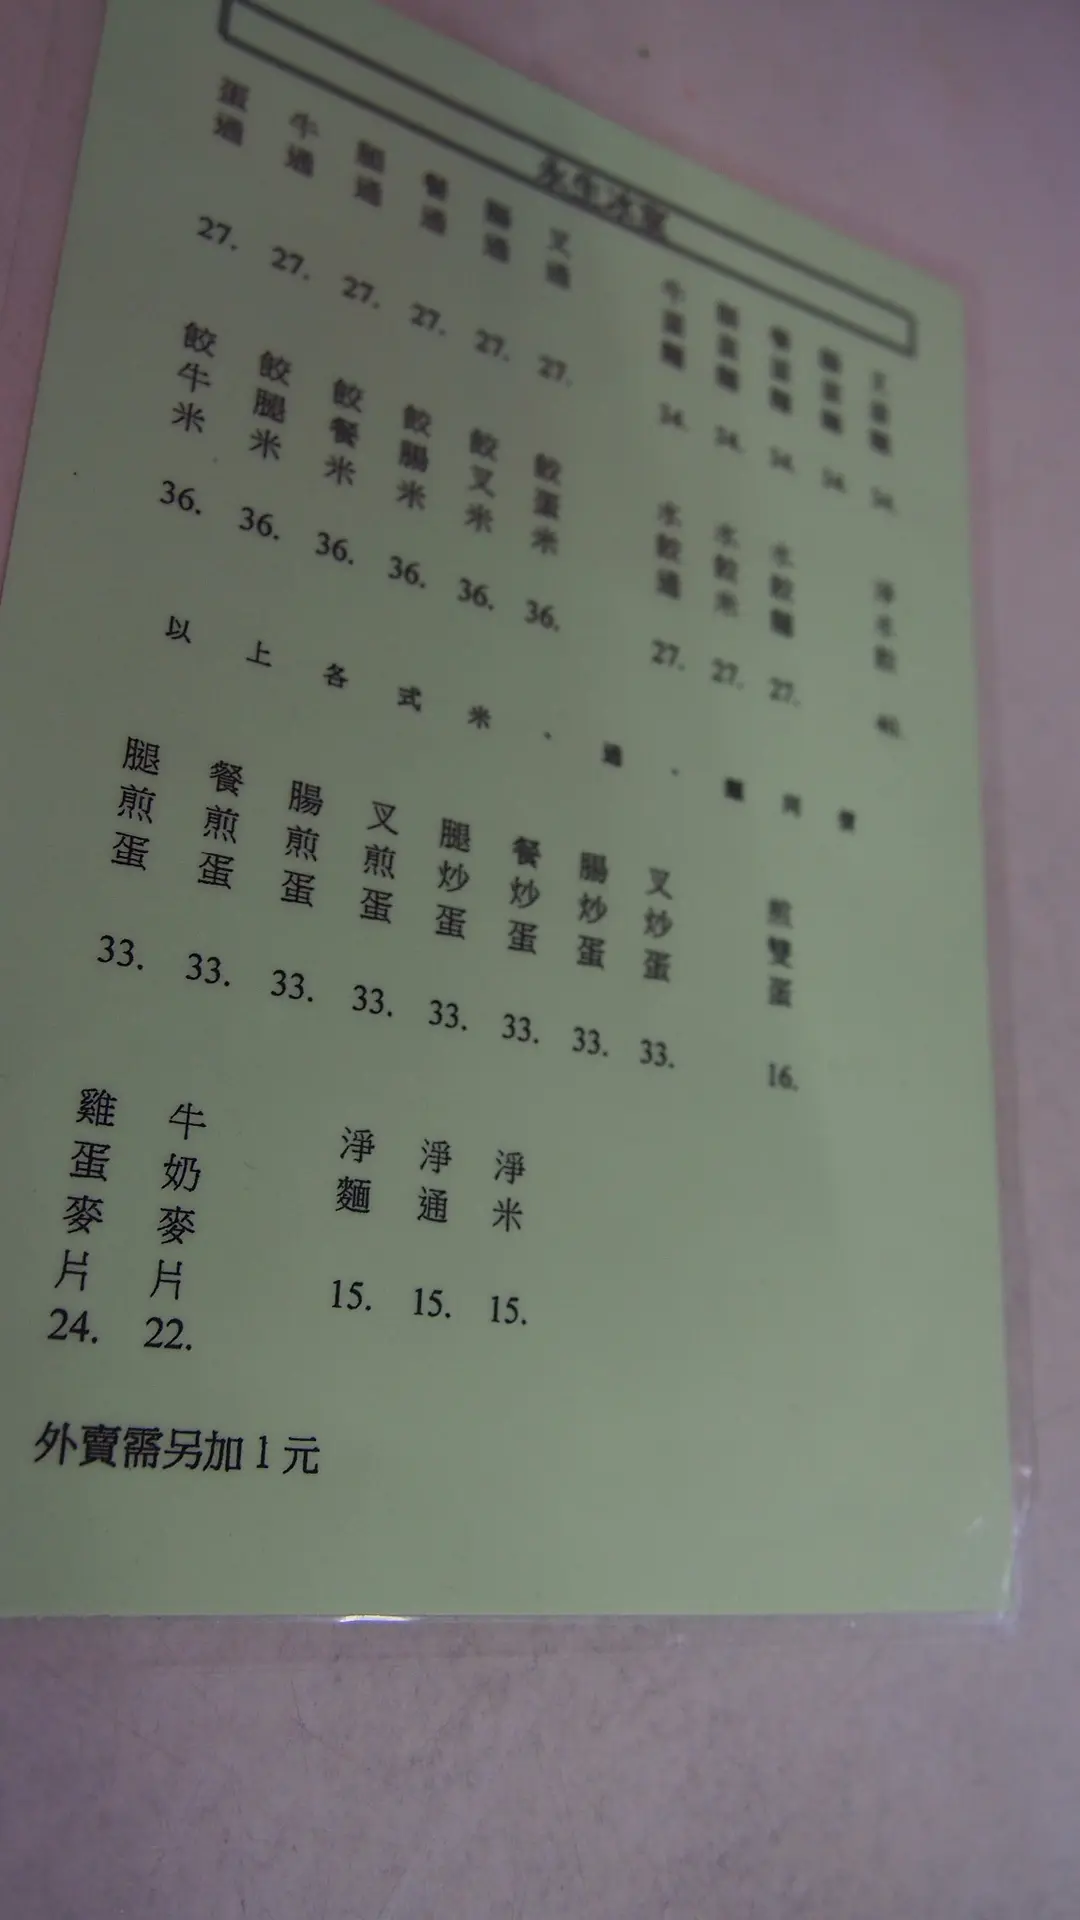 永生冰室
蛋通 27.
牛通 27.
腿通 27.
餐通 27.
腸通 27.
叉通 27.
牛蛋麵 34.
腿蛋麵 34.
餐蛋麵 34.
腸蛋麵 34.
叉蛋麵 34.
餃牛米 36.
餃腿米 36.
餃餐米 36.
餃腸米 36.
餃叉米 36.
餃蛋米 36.
水餃通 27.
水餃米 27.
水餃麵 27.
淨水餃 40.
以上各式米、通、麵同價
腿煎蛋 33.
餐煎蛋 33.
腸煎蛋 33.
叉煎蛋 33.
腿炒蛋 33.
餐炒蛋 33.
腸炒蛋 33.
叉炒蛋 33.
煎雙蛋 16.
雞蛋麥片 24.
牛奶麥片 22.
淨麵 15.
淨通 15.
淨米 15.
外賣需另加1元